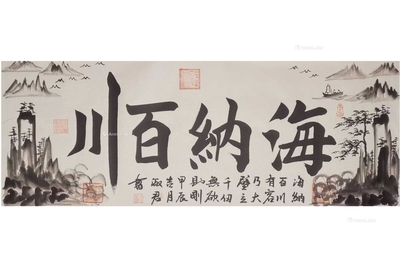 海納百川
海納
百川
有容
乃大
壁立
千仞
無欲
則剛
甲辰
淑君
書